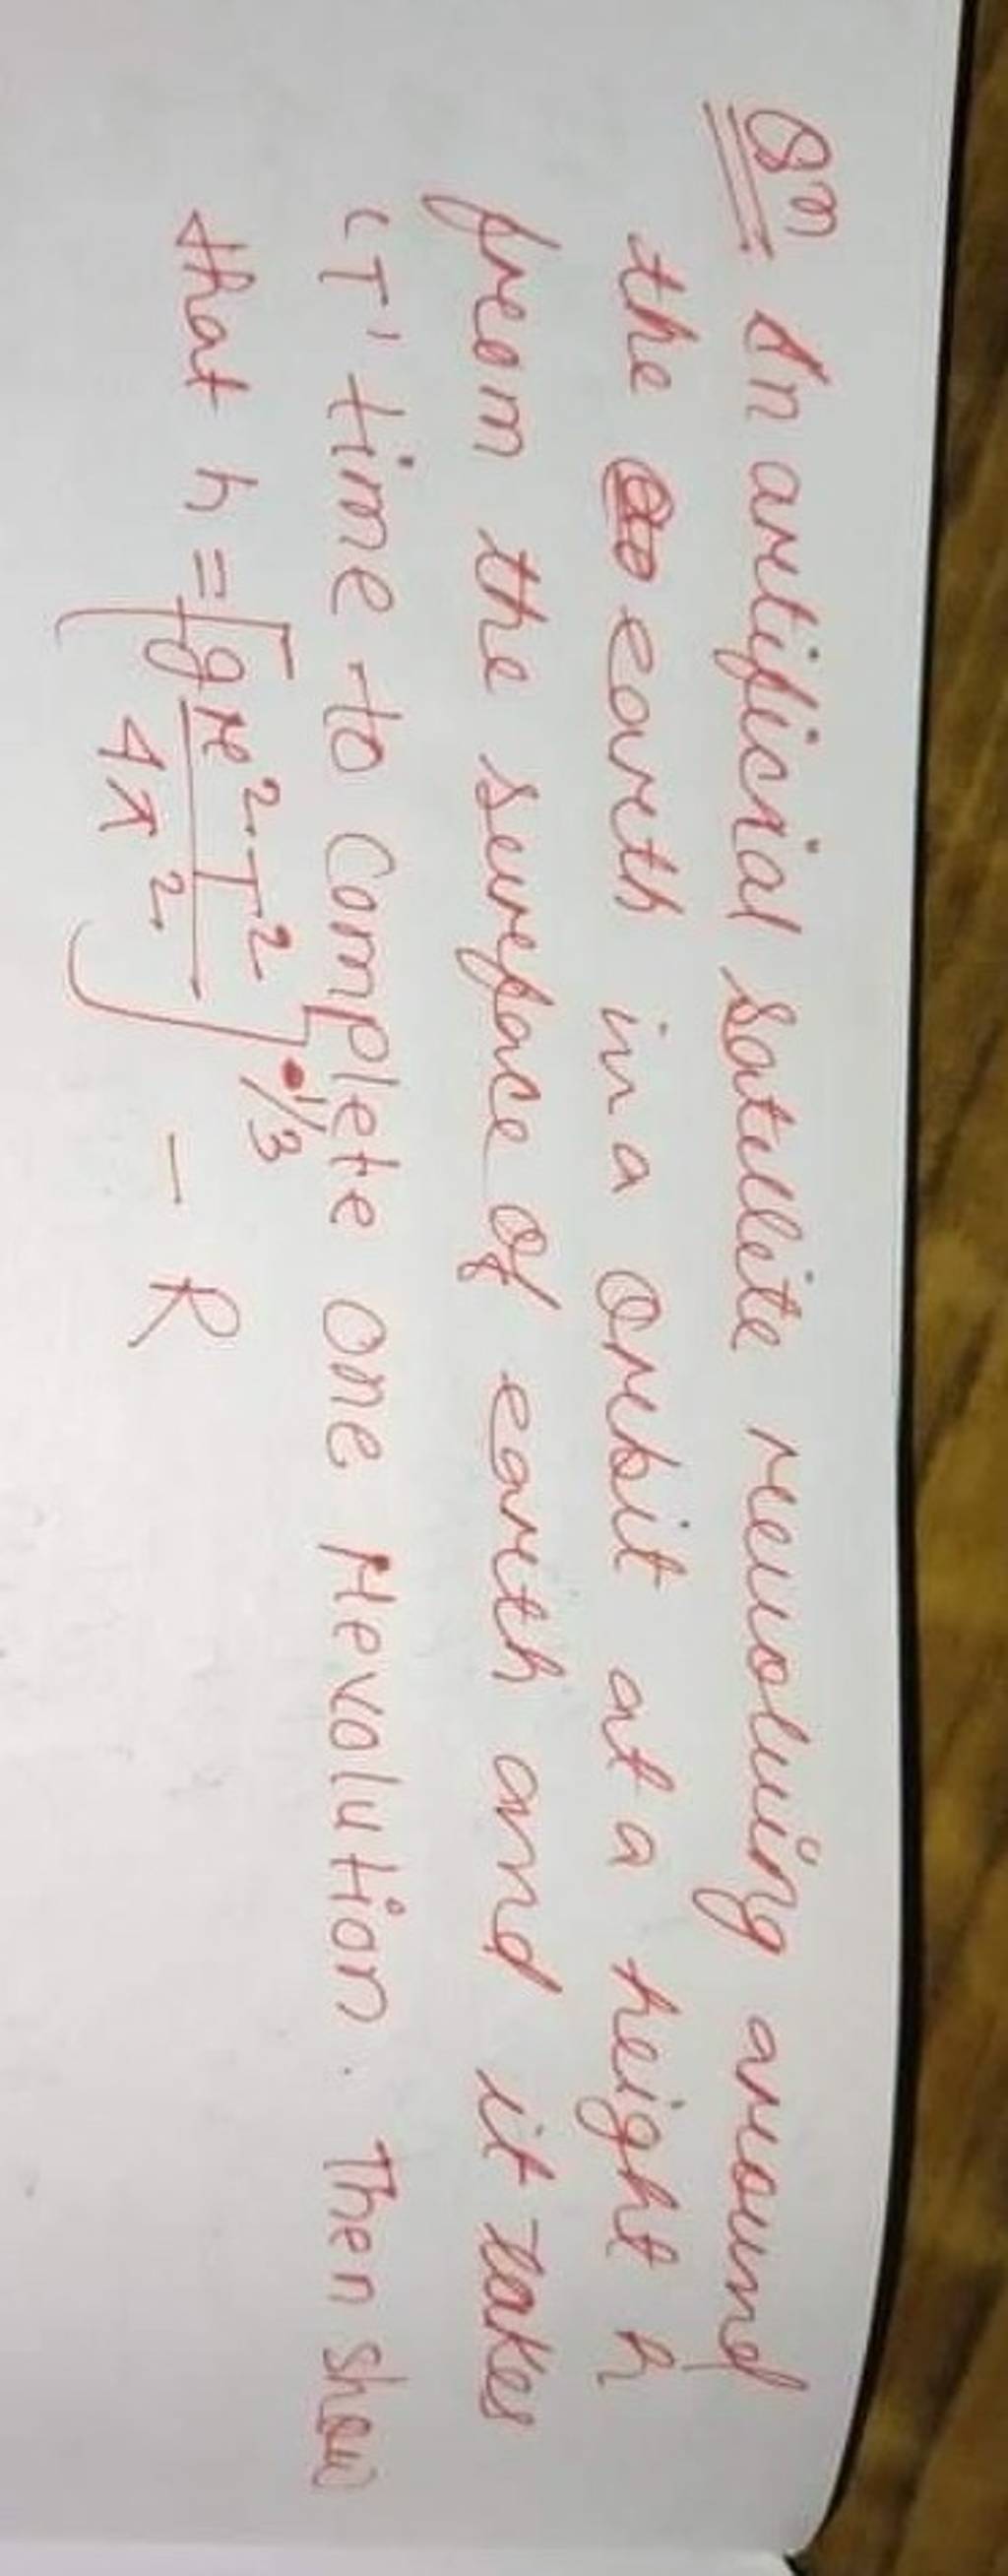 Qn. An artificial satellite revolving around
the earth in a orbit at a height h
from the surface of earth and it takes
'T' time to complete one revolution. Then show
that h = [gR²T²/4π²]^1/3 - R